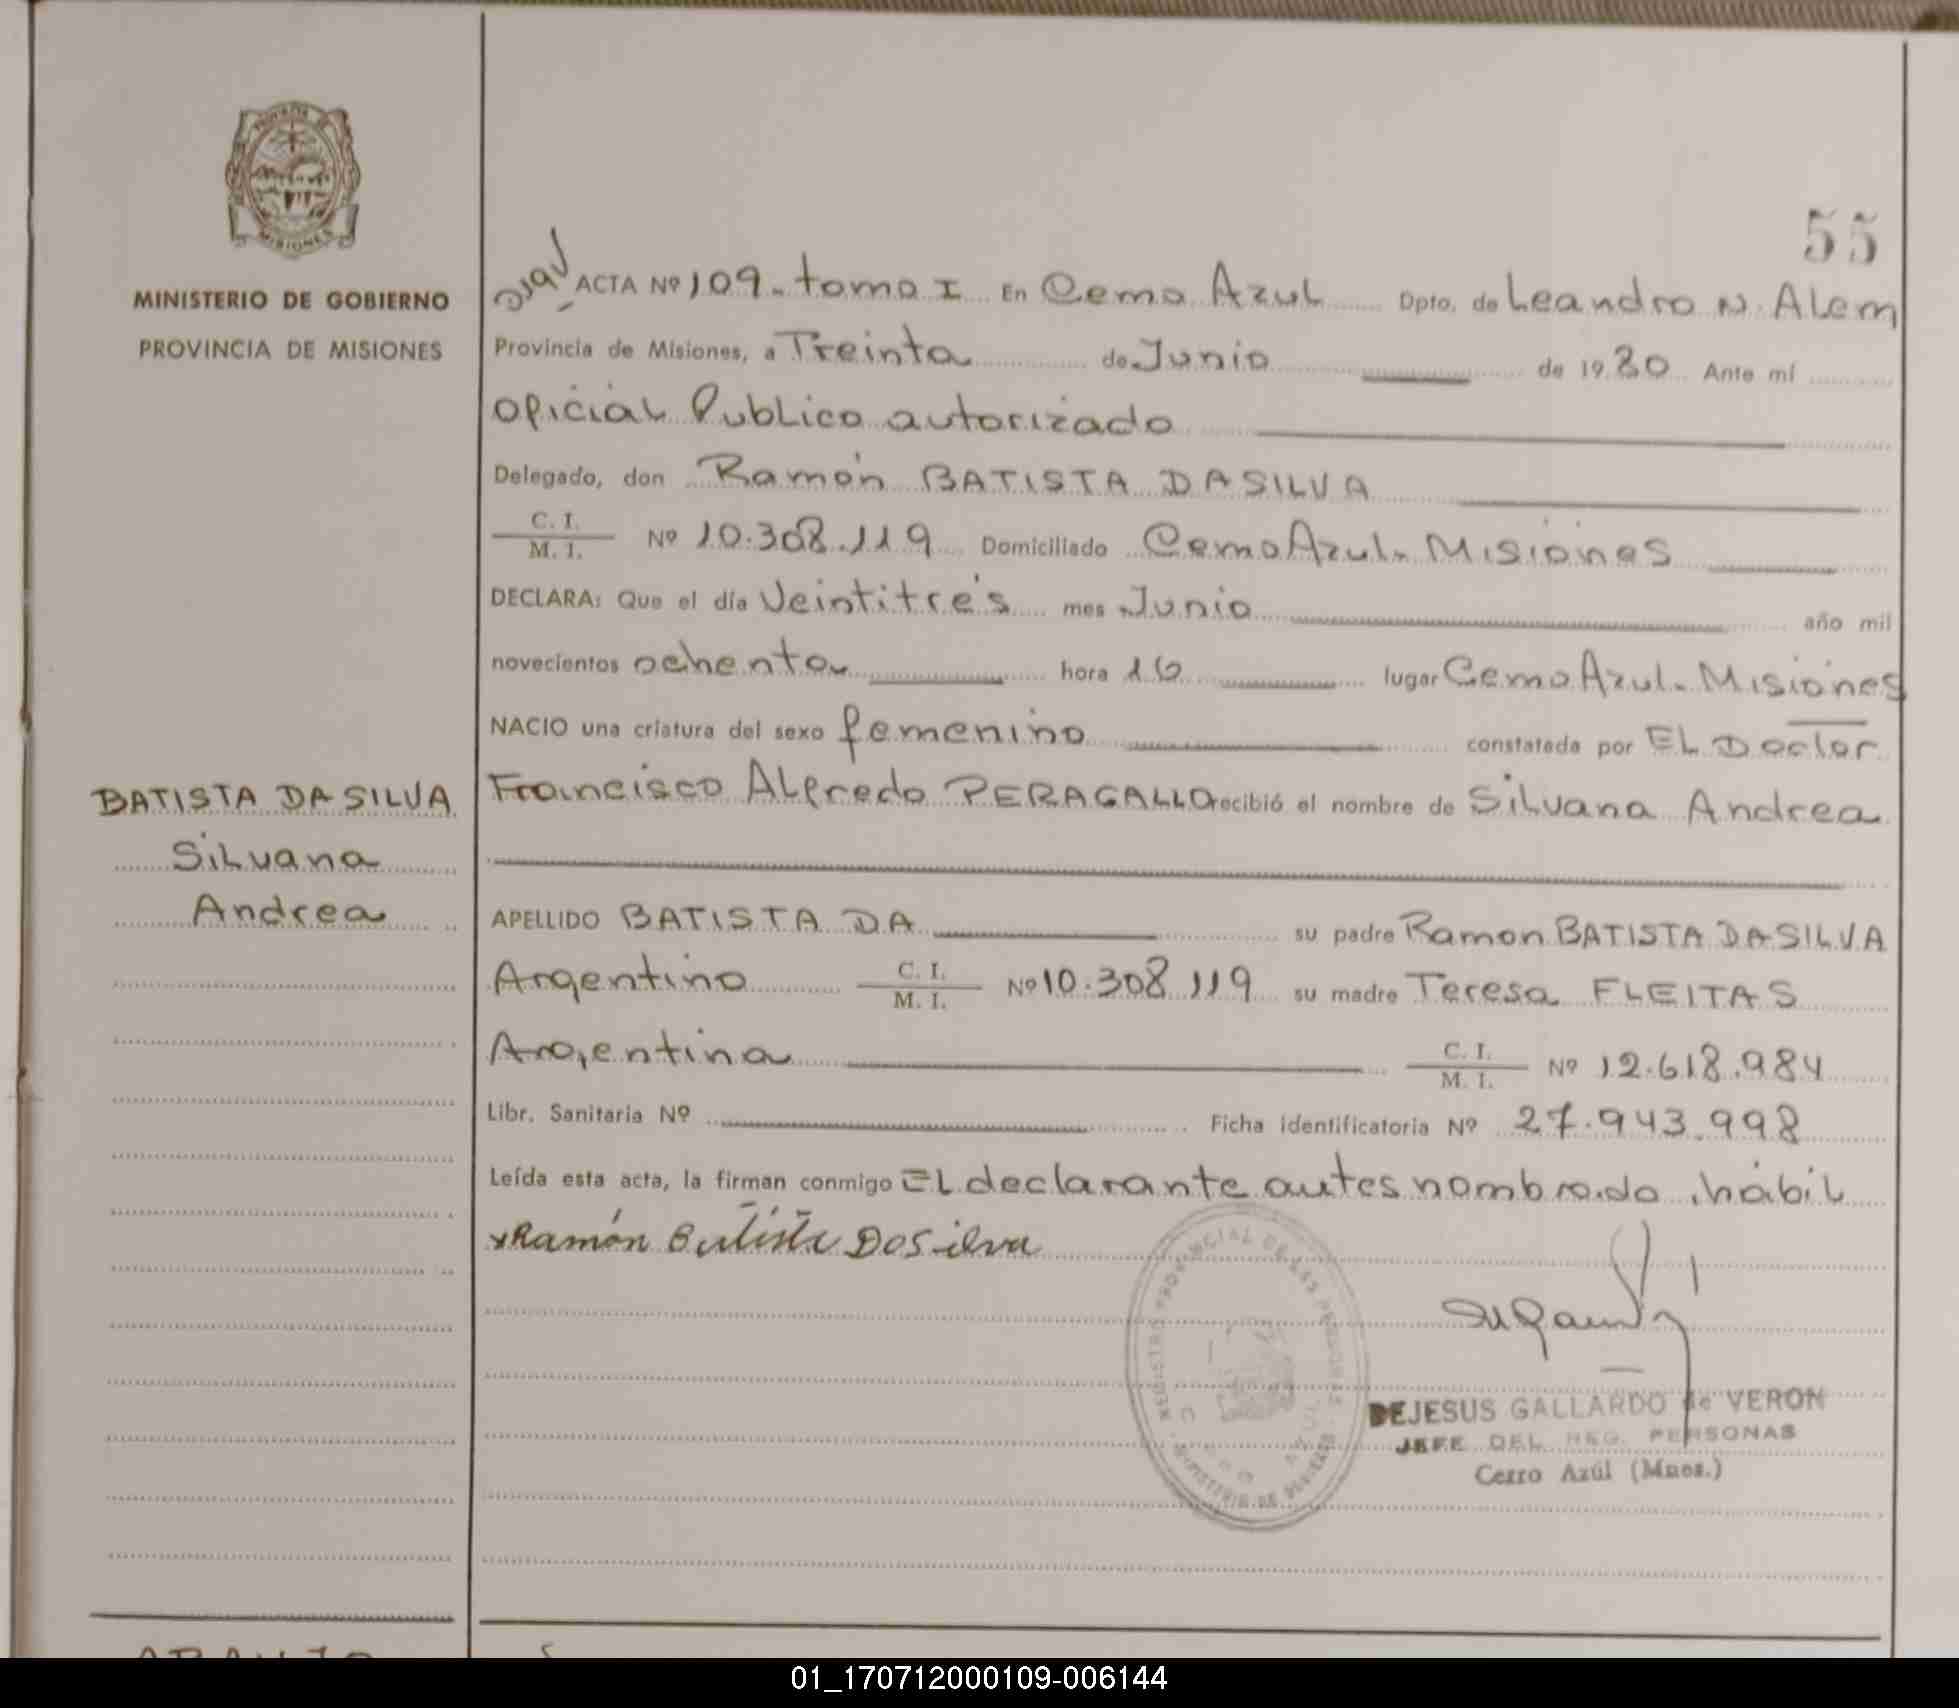 PROVINCIA DE
MISIONES
MINISTERIO DE GOBIERNO
PROVINCIA DE MISIONES
BATISTA DA SILVA
Silvana
Andrea
55
ACTA Nº 109. tomo I En Cerro Azul Dpto. de Leandro N. Alem
Provincia de Misiones, a Treinta de Junio de 1980 Ante mí
oficial Publico autorizado
Delegado, don Ramón BATISTA DA SILVA
C. I.
M. I. Nº 10.308.119 Domiciliado Cerro Azul. Misiones
DECLARA: Que el día Veintitrés mes Junio año mil
novecientos ochenta hora 16 lugar Cerro Azul. Misiones
NACIO una criatura del sexo femenino constatada por El Doctor
Francisco Alfredo PERAGALLO recibió el nombre de Silvana Andrea
APELLIDO BATISTA DA su padre Ramon BATISTA DA SILVA
Argentino C. I.
M. I. Nº 10.308.119 su madre Teresa FLEITAS
Argentina C. I.
M. I. Nº 12.618.984
Libr. Sanitaria Nº Ficha identificatoria Nº 27.943.998
Leída esta acta, la firman conmigo El declarante antes nombrado, hábil
Ramón Batista Da Silva
REGISTRO PROVINCIAL DE LAS PERSONAS
MINISTERIO DE
DEJESUS GALLARDO de VERON
JEFE DEL REG. PERSONAS
Cerro Azúl (Mnes.)
01_170712000109-006144